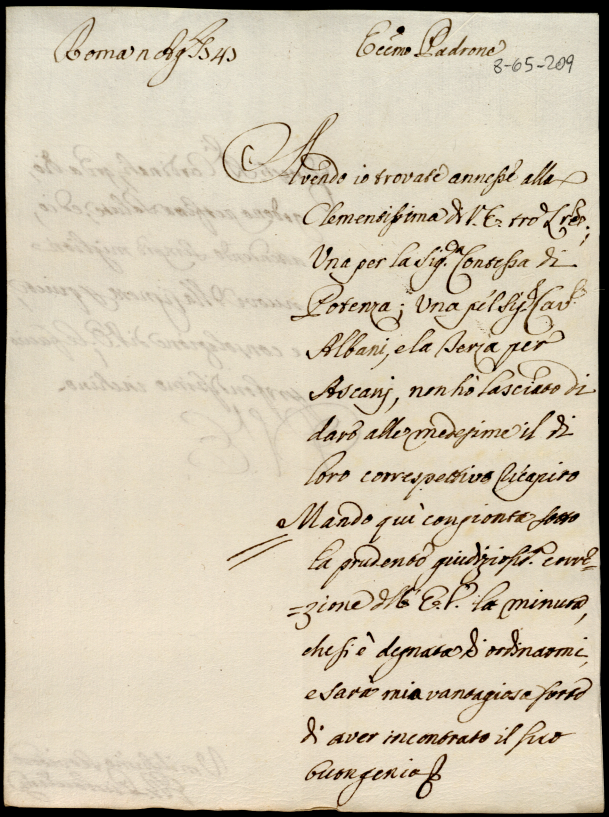 Roma n Ag.
Ecc.mo Padrone
8-65-209
Avendo io trovate annesse alla
Clementissima di V. E. tre Lre.;
Una per la Sig.a Contessa di
Potenza; Una p el Sig.r Cav.r
Albani, e la Terza per
Ascanj, non ho lasciato di
dare alle medesime il di
loro correspettivo Ricapito
Mando quì congionta sotto
la prudente giudiziosis.a corre=
=zione dell' E. V. la minuta,
che si è degnata di ordinarmi,
e sarà mia vantagiosa sorte
di aver incontrato il suo
buon genio